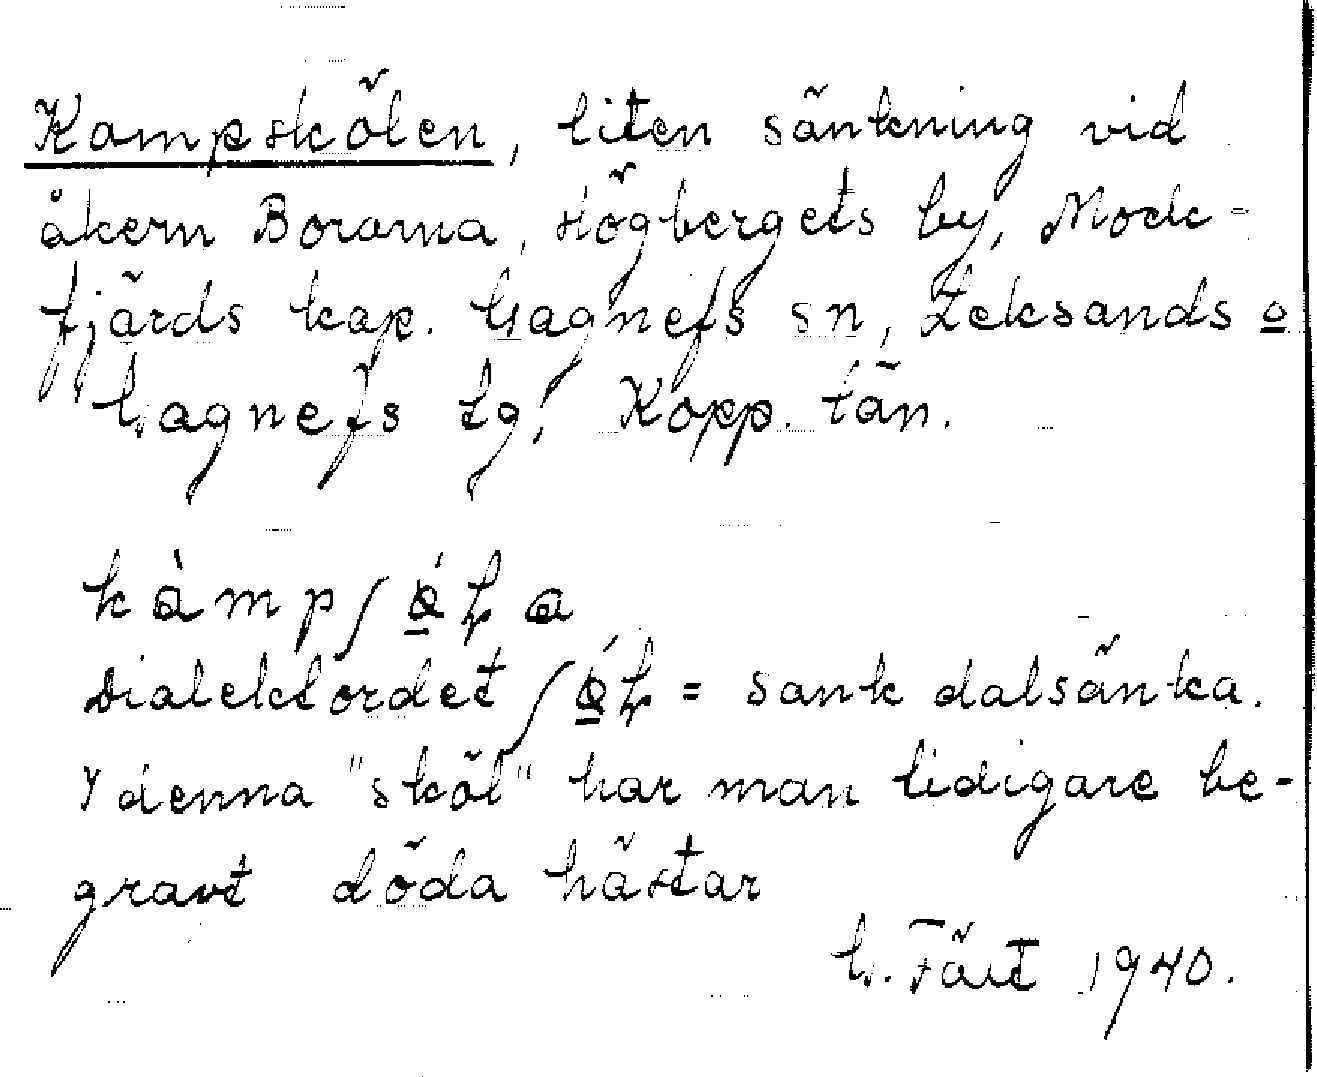 Kampskölen, liten sänkning vid
åkern Borarna, Högbergets by, Mock-
fjärds kap. Gagnefs sn, Leksands o
Gagnefs tg, Kopp. län.
Dialektordet = sank dalsänka.
I denna "sköl" har man tidigare be-
gravt döda hästar
G. Täut 1940.